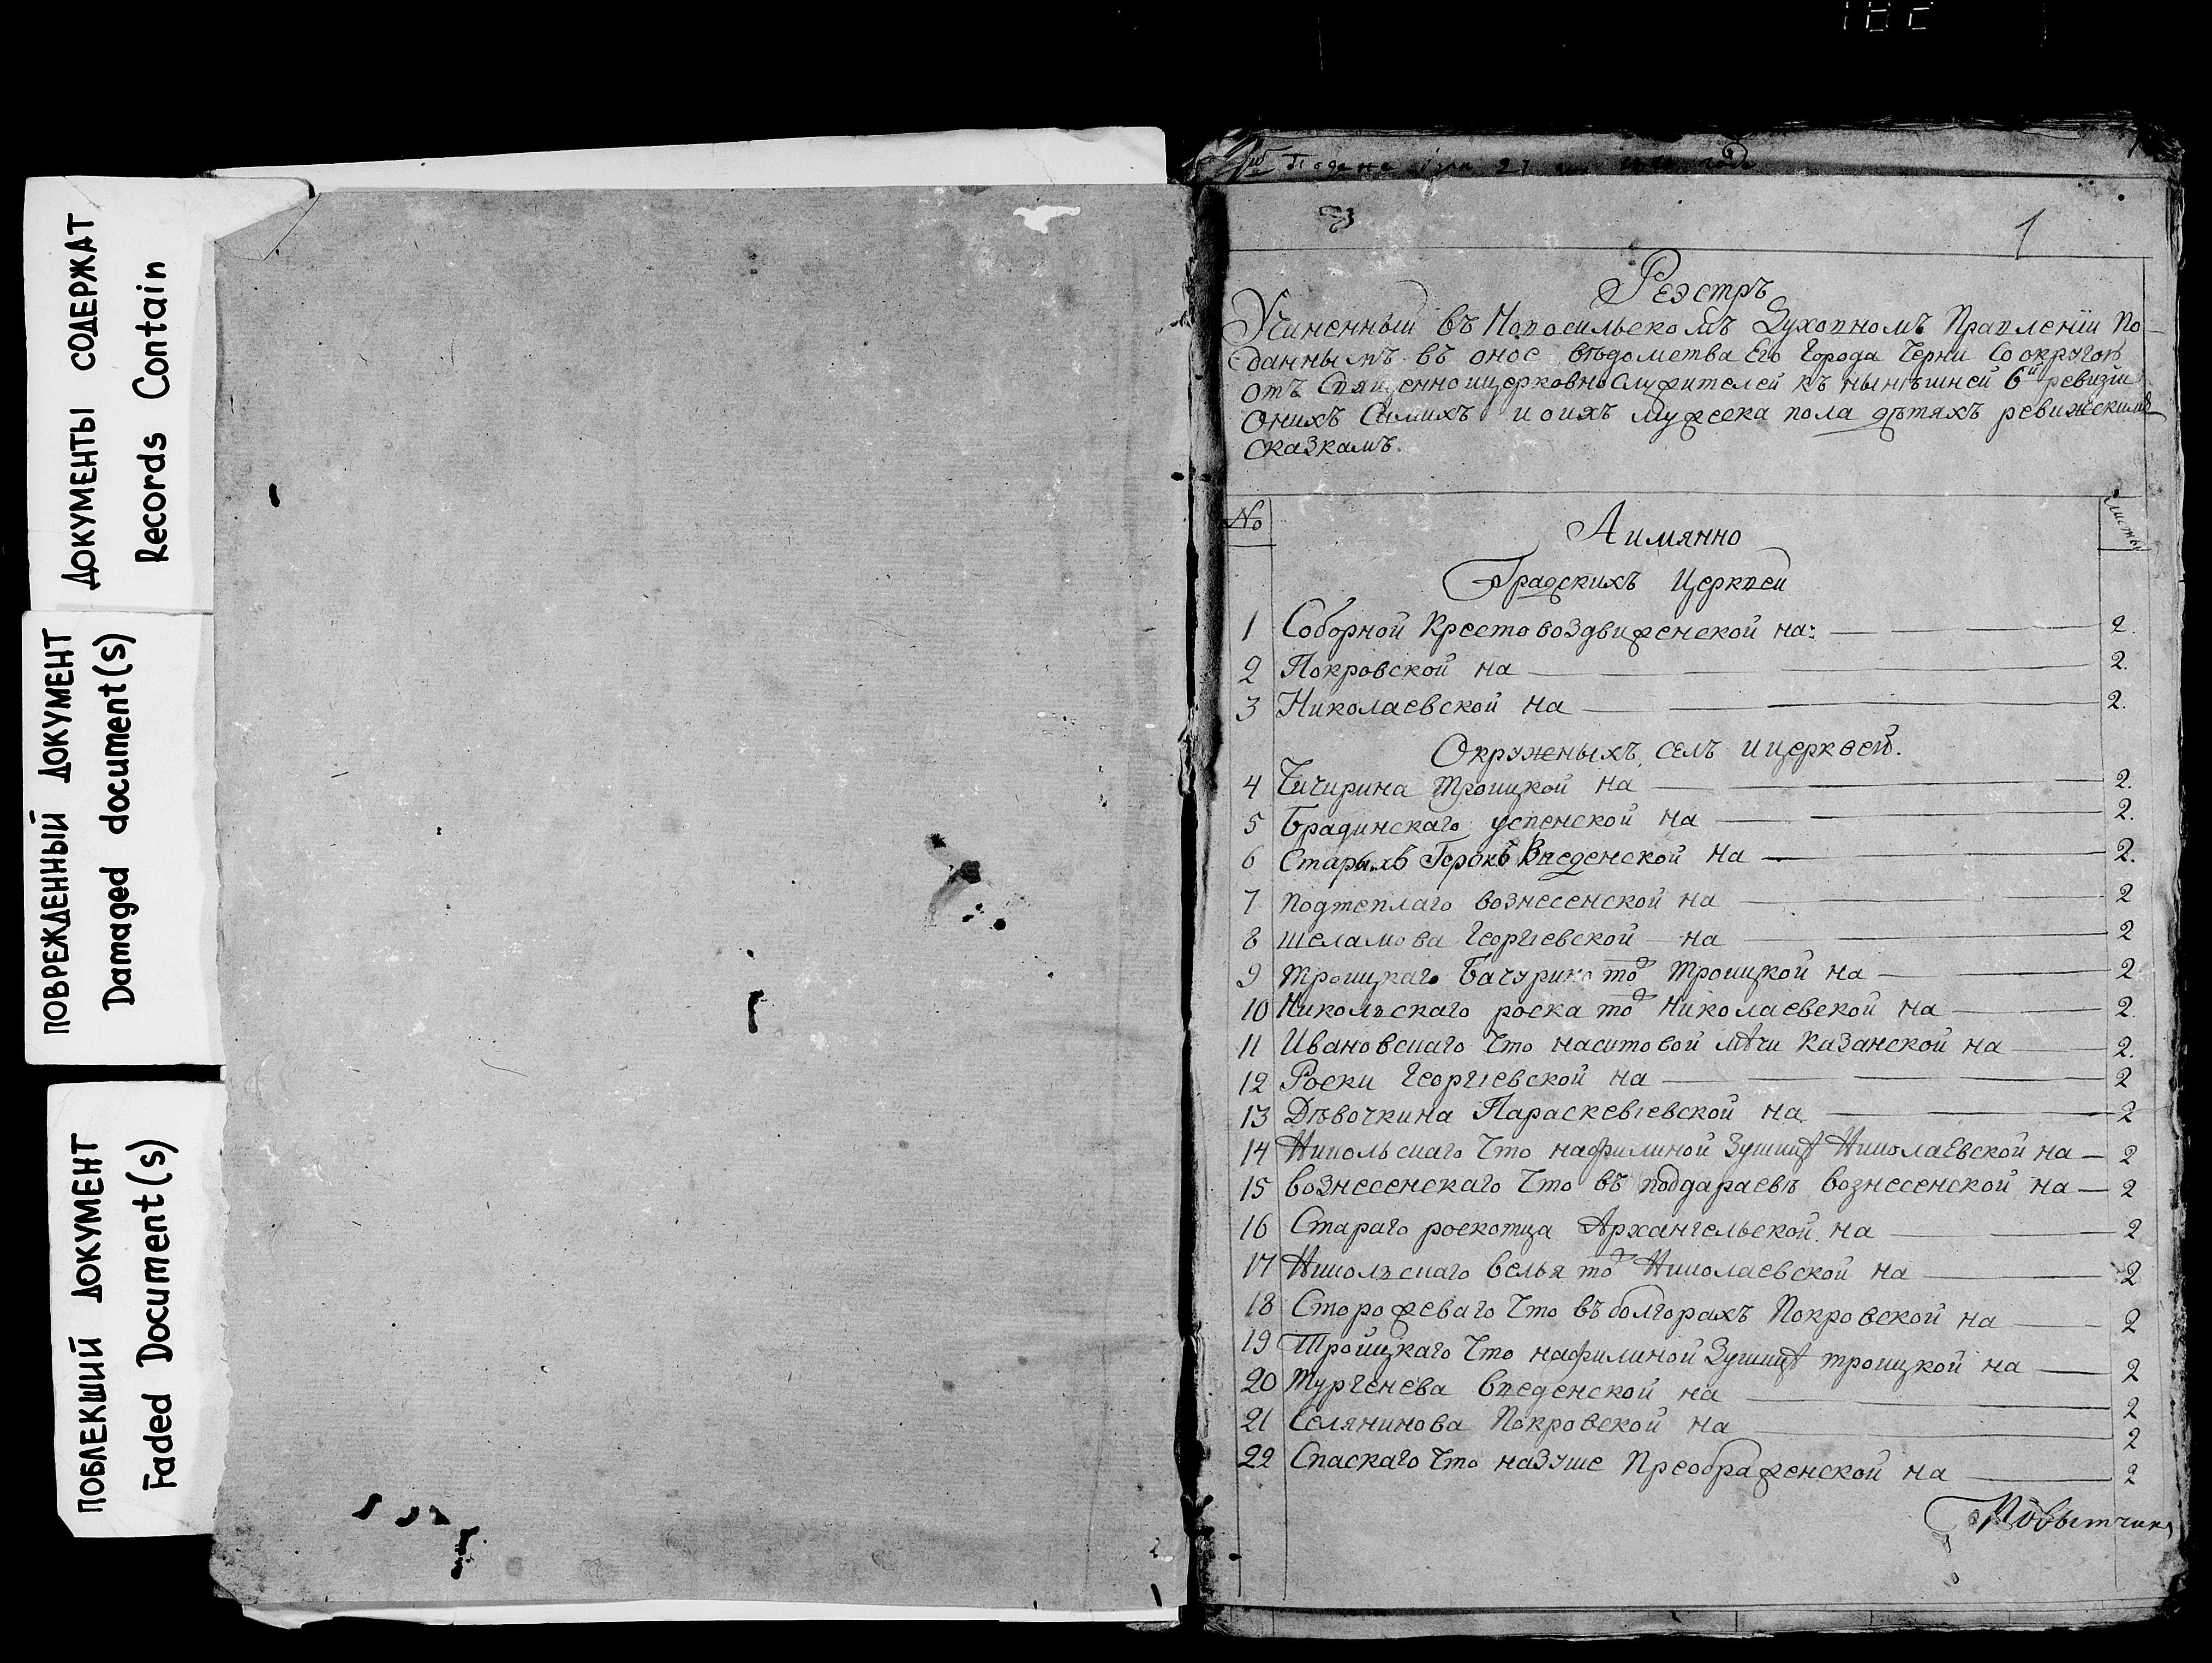 ДОКУМЕНТЫ СОДЕРЖАТ
Records Contain
ПОВРЕЖДЕННЫЙ ДОКУМЕНТ
Damaged document(s)
ПОБЛЕКШИЙ ДОКУМЕНТ
Faded Document(s)
Подана 27 года
1
Реэстръ
Учиненный въ Новосильскомъ Духовномъ Правленіи По-
даннымъ въ оное вѣдомства Его Города Черни Со округою
отъ Священно ицерковно Служителей къ нынѣшней 6й ревизіи
Онихъ Самихъ и оихъ мужеска пола дѣтяхъ ревижскимъ
Сказкамъ.
№ Аимянно Листы
Градскихъ Церквей
1 Соборной Крестовоздвиженской на: 2.
2 Покровской на 2.
3 Николаевской на 2.
Окруженыхъ селъ ицерквей.
4 Чичирина Троицкой на 2.
5 Брадинскаго успенской на 2.
6 Старыхъ Горокъ Введенской на 2.
7 Подтеплаго вознесенской на 2
8 шеламова Георгіевской на 2
9 троицкаго Бачурино тод троицкой на 2
10 Никольскаго роска тод Николаевской на 2.
11 Ивановскаго Что наситовой мѣчи Казанской на 2.
12 Роски Георгіевской на 2
13 Дѣвочкина Параскевіевской на 2
14 Никольскаго Что нафилиной Зушицѣ Николаевской на 2
15 вознесенскаго Что въ поддараевѣ вознесенской на 2
16 Стараго роскотца Архангельской на 2
17 Никольскаго велья тод Николаевской на 2
18 Сторожеваго Что въ болгорахъ Покровской на 2
19 Троицкаго Что нафилиной Зушицѣ троицкой на 2
20 Тургенева введенской на 2
21 Селянинова Покровской на 2
22 Спаскаго Что наЗуше Преображенской на 2
Повытчикъ